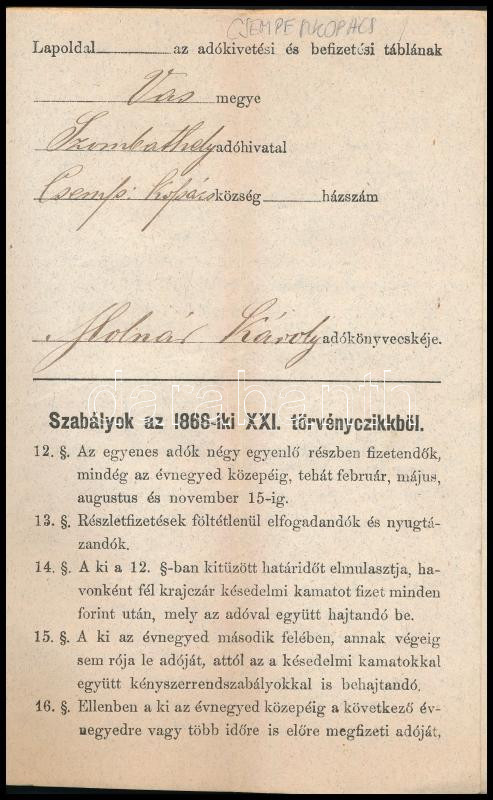 CSEMPE KOPÁCS
Lapoldal az adókivetési és befizetési táblának
Vas megye
Szombathely adóhivatal
Csemp: Kopács község házszám
Molnár Károly adókönyvecskéje.
darabanth
Szabályok az 1868-iki XXI. törvényczikkből.
12. §. Az egyenes adók négy egyenlő részben fizetendők,
mindég az évnegyed közepéig, tehát február, május,
augustus és november 15-ig.
13. §. Részletfizetések föltétlenül elfogadandók és nyugtá-
zandók.
14. §. A ki a 12. §-ban kitüzött határidőt elmulasztja, ha-
vonként fél krajczár késedelmi kamatot fizet minden
forint után, mely az adóval együtt hajtandó be.
15. §. A ki az évnegyed második felében, annak végeig
sem rója le adóját, attól az a késedelmi kamatokkal
együtt kényszerrendszabályokkal is behajtandó.
16. §. Ellenben a ki az évnegyed közepéig a következő év-
negyedre vagy több időre is előre megfizeti adóját,